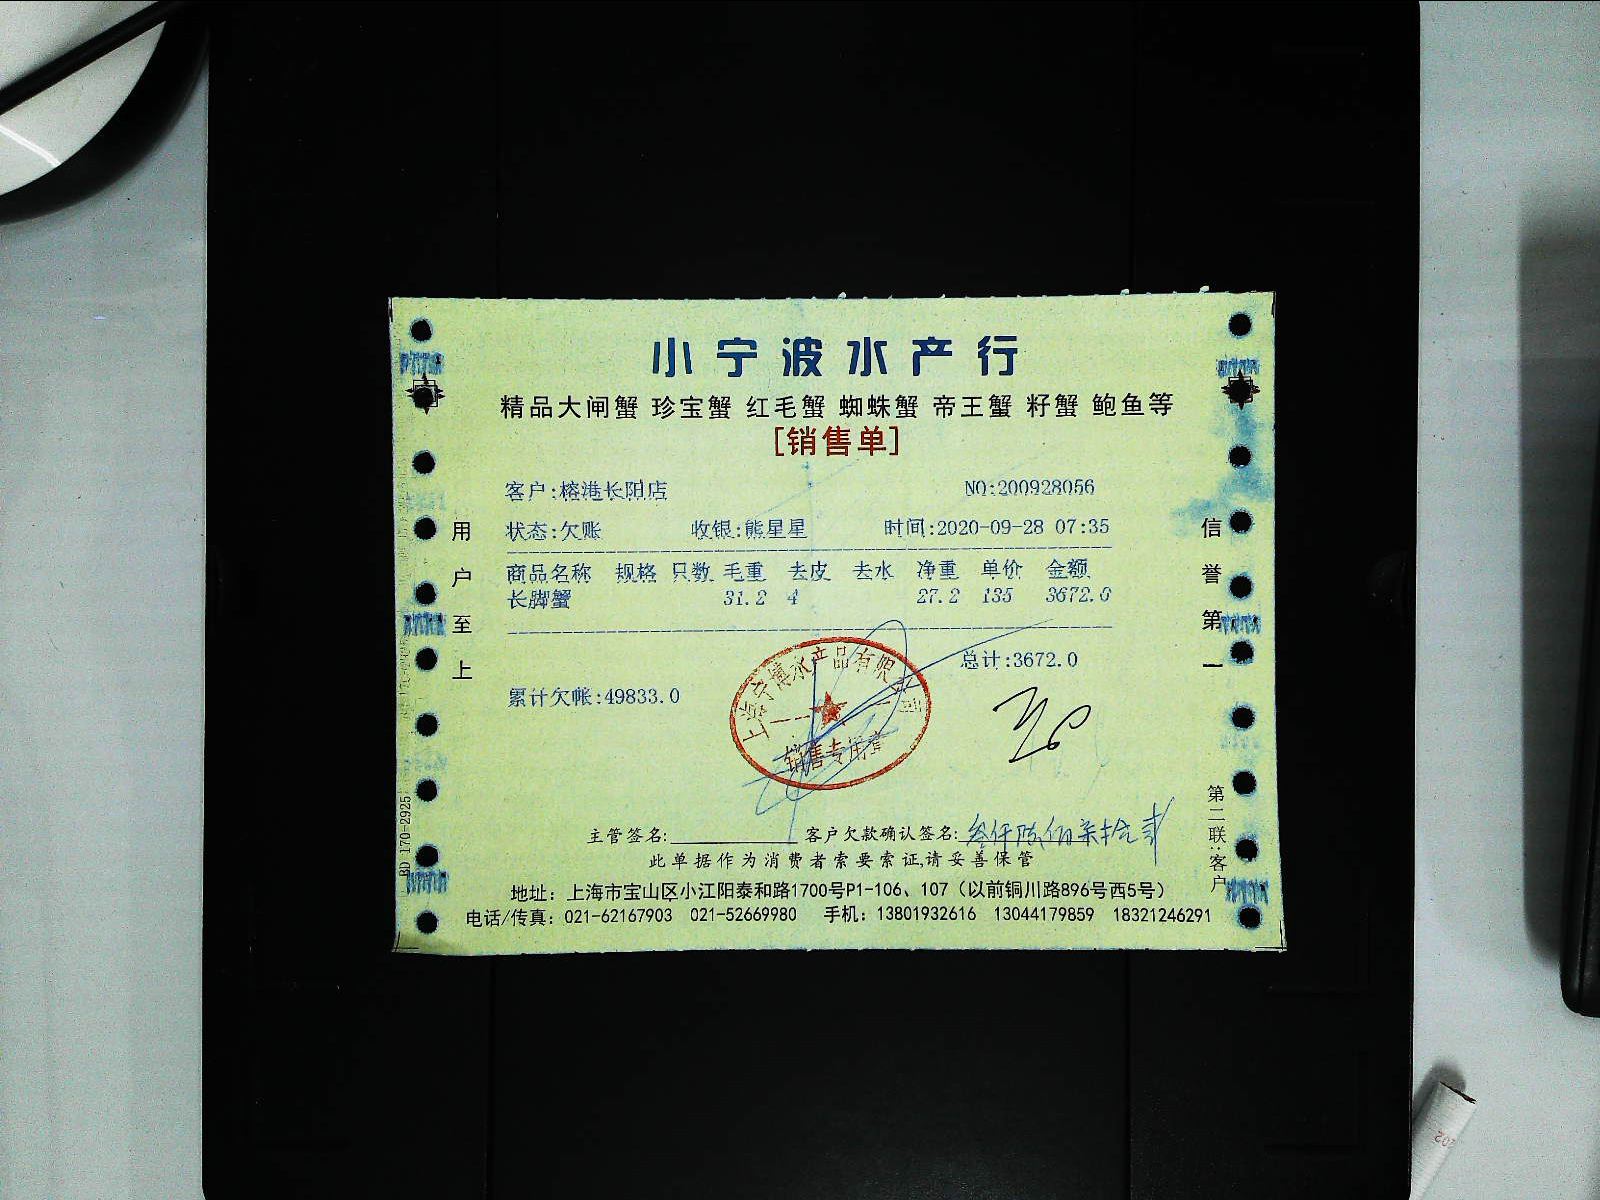 小宁波水产行
精品大闸蟹 珍宝蟹 红毛蟹 蜘蛛蟹 帝王蟹 籽蟹 鲍鱼等
[销售单]
客户:榕港长阳店 NO:200928056
状态:欠账 收银:熊星星 时间:2020-09-28 07:35
商品名称 规格 只数 毛重 去皮 去水 净重 单价 金额
长脚蟹 31.2 4 27.2 135 3672.0
总计:3672.0
累计欠帐:49833.0
上海宁博水产品有限公司
销售专用章
主管签名: 客户欠款确认签名: 叁仟陆佰柒拾贰
此单据作为消费者索要索证,请妥善保管
地址：上海市宝山区小江阳泰和路1700号P1-106、107（以前铜川路896号西5号）
电话/传真：021-62167903 021-52669980 手机：13801932616 13044179859 18321246291
用户至上
信誉第一
第二联:客户
BD 170-2925